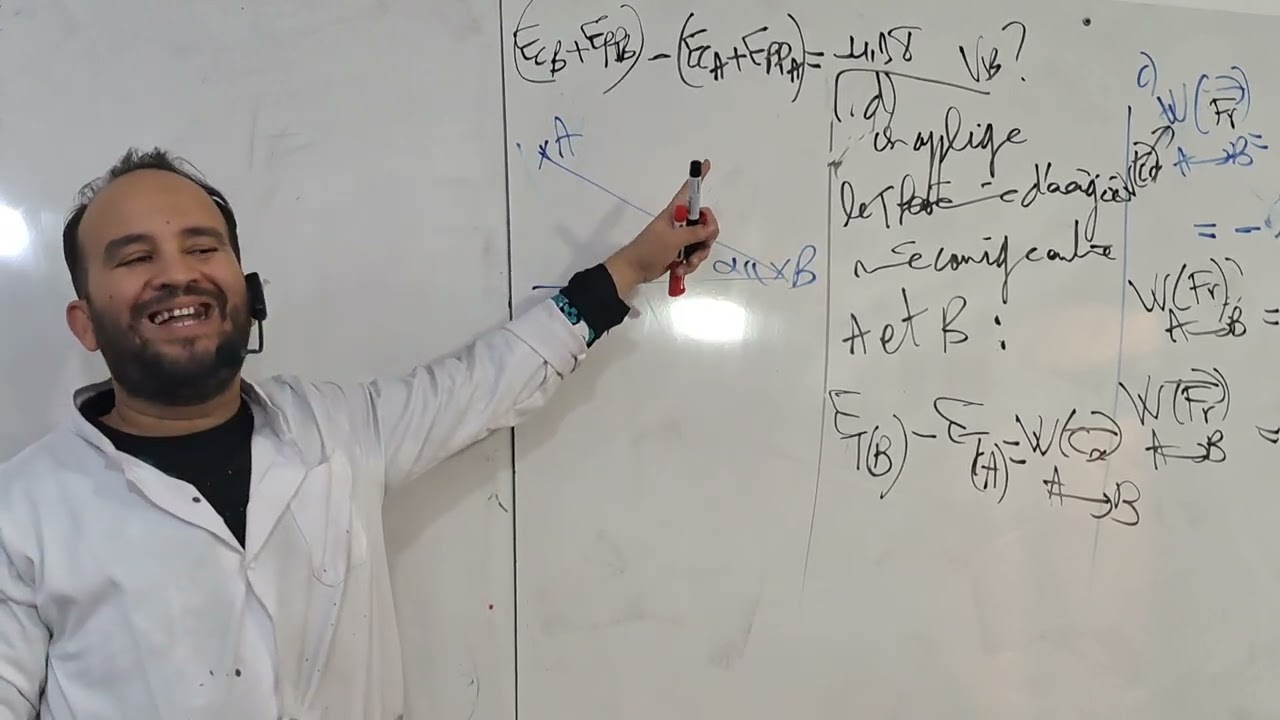 (EcB + EppB) - (EcA + EppA) = -4,38 VB ?
A
α B
1.d)
on applique
le T d'énergie
mécanique entre
A et B :
E T(B) - E T(A) = W(
A → B
c)
W(Fr)
A → B =
= -
W(Fr)
A → B =
W(Fr)
A → B =